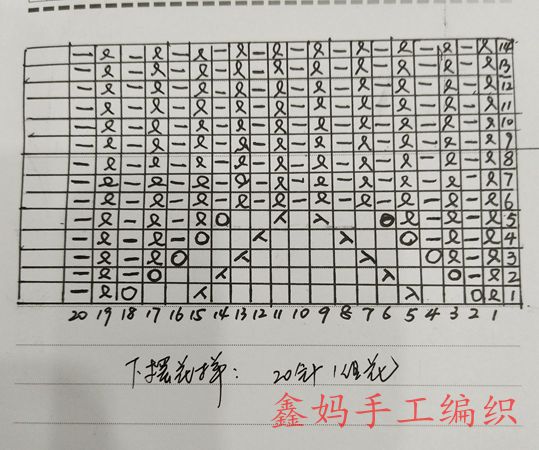 14
13
12
11
10
9
8
7
6
5
4
3
2
1
20 19 18 17 16 15 14 13 12 11 10 9 8 7 6 5 4 3 2 1
下摆花样: 20针1组花
鑫妈手工编织